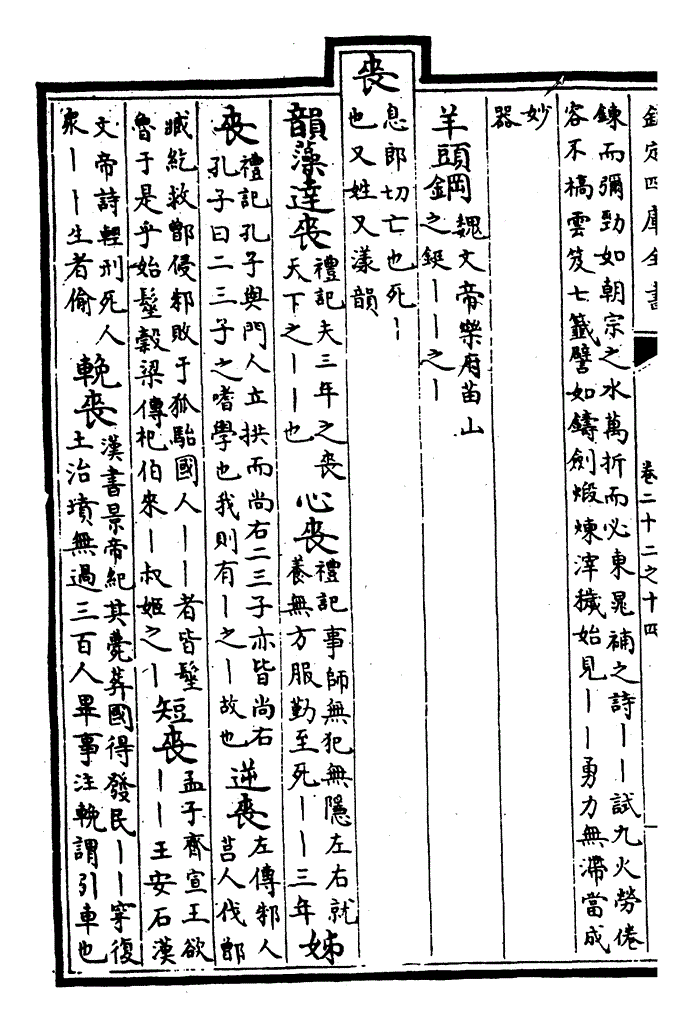 欽定四庫全書 卷二十二之十四
鍊而彌勁如朝宗之水萬折而必東晁補之詩丨丨試九火勞倦
容不槁雲笈七籤譬如鑄劍煅煉滓穢始見丨丨勇力無滯當成
妙
器
羊頭鋼
魏文帝樂府苗山
之鋌丨丨之丨
喪
息郎切亡也死丨
也又姓又漾韻
韻藻達喪
禮記夫三年之喪
天下之丨丨也
心喪
禮記事師無犯無隱左右就
養無方服勤至死丨丨三年
姊
喪
禮記孔子與門人立拱而尚右二三子亦皆尚右
孔子曰二三子之嗜學也我則有丨之丨故也
逆喪
左傳邾人
莒人伐鄫
臧紇救鄫侵邾敗于狐駘國人丨丨者皆髽
魯于是乎始髽穀梁傳杞伯來丨叔姬之丨
短喪
孟子齊宣王欲
丨丨王安石漢
文帝詩輕刑死人
衆丨丨生者偷
輓喪
漢書景帝紀其薨葬國得發民丨丨穿復
土治墳無過三百人畢事注輓謂引車也